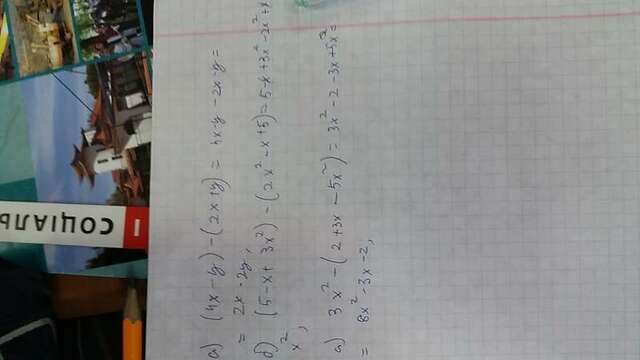 СОЦІАЛЬ
а) (4x-y)-(2x+y) = 4x-y-2x-y=
= 2x-2y;
б) (5-x+3x²)-(2x²-x+5)=5-x+3x²-2x²+x
x²;
а) 3x²-(2+3x-5x²)=3x²-2-3x+5x²=
= 8x²-3x-2;